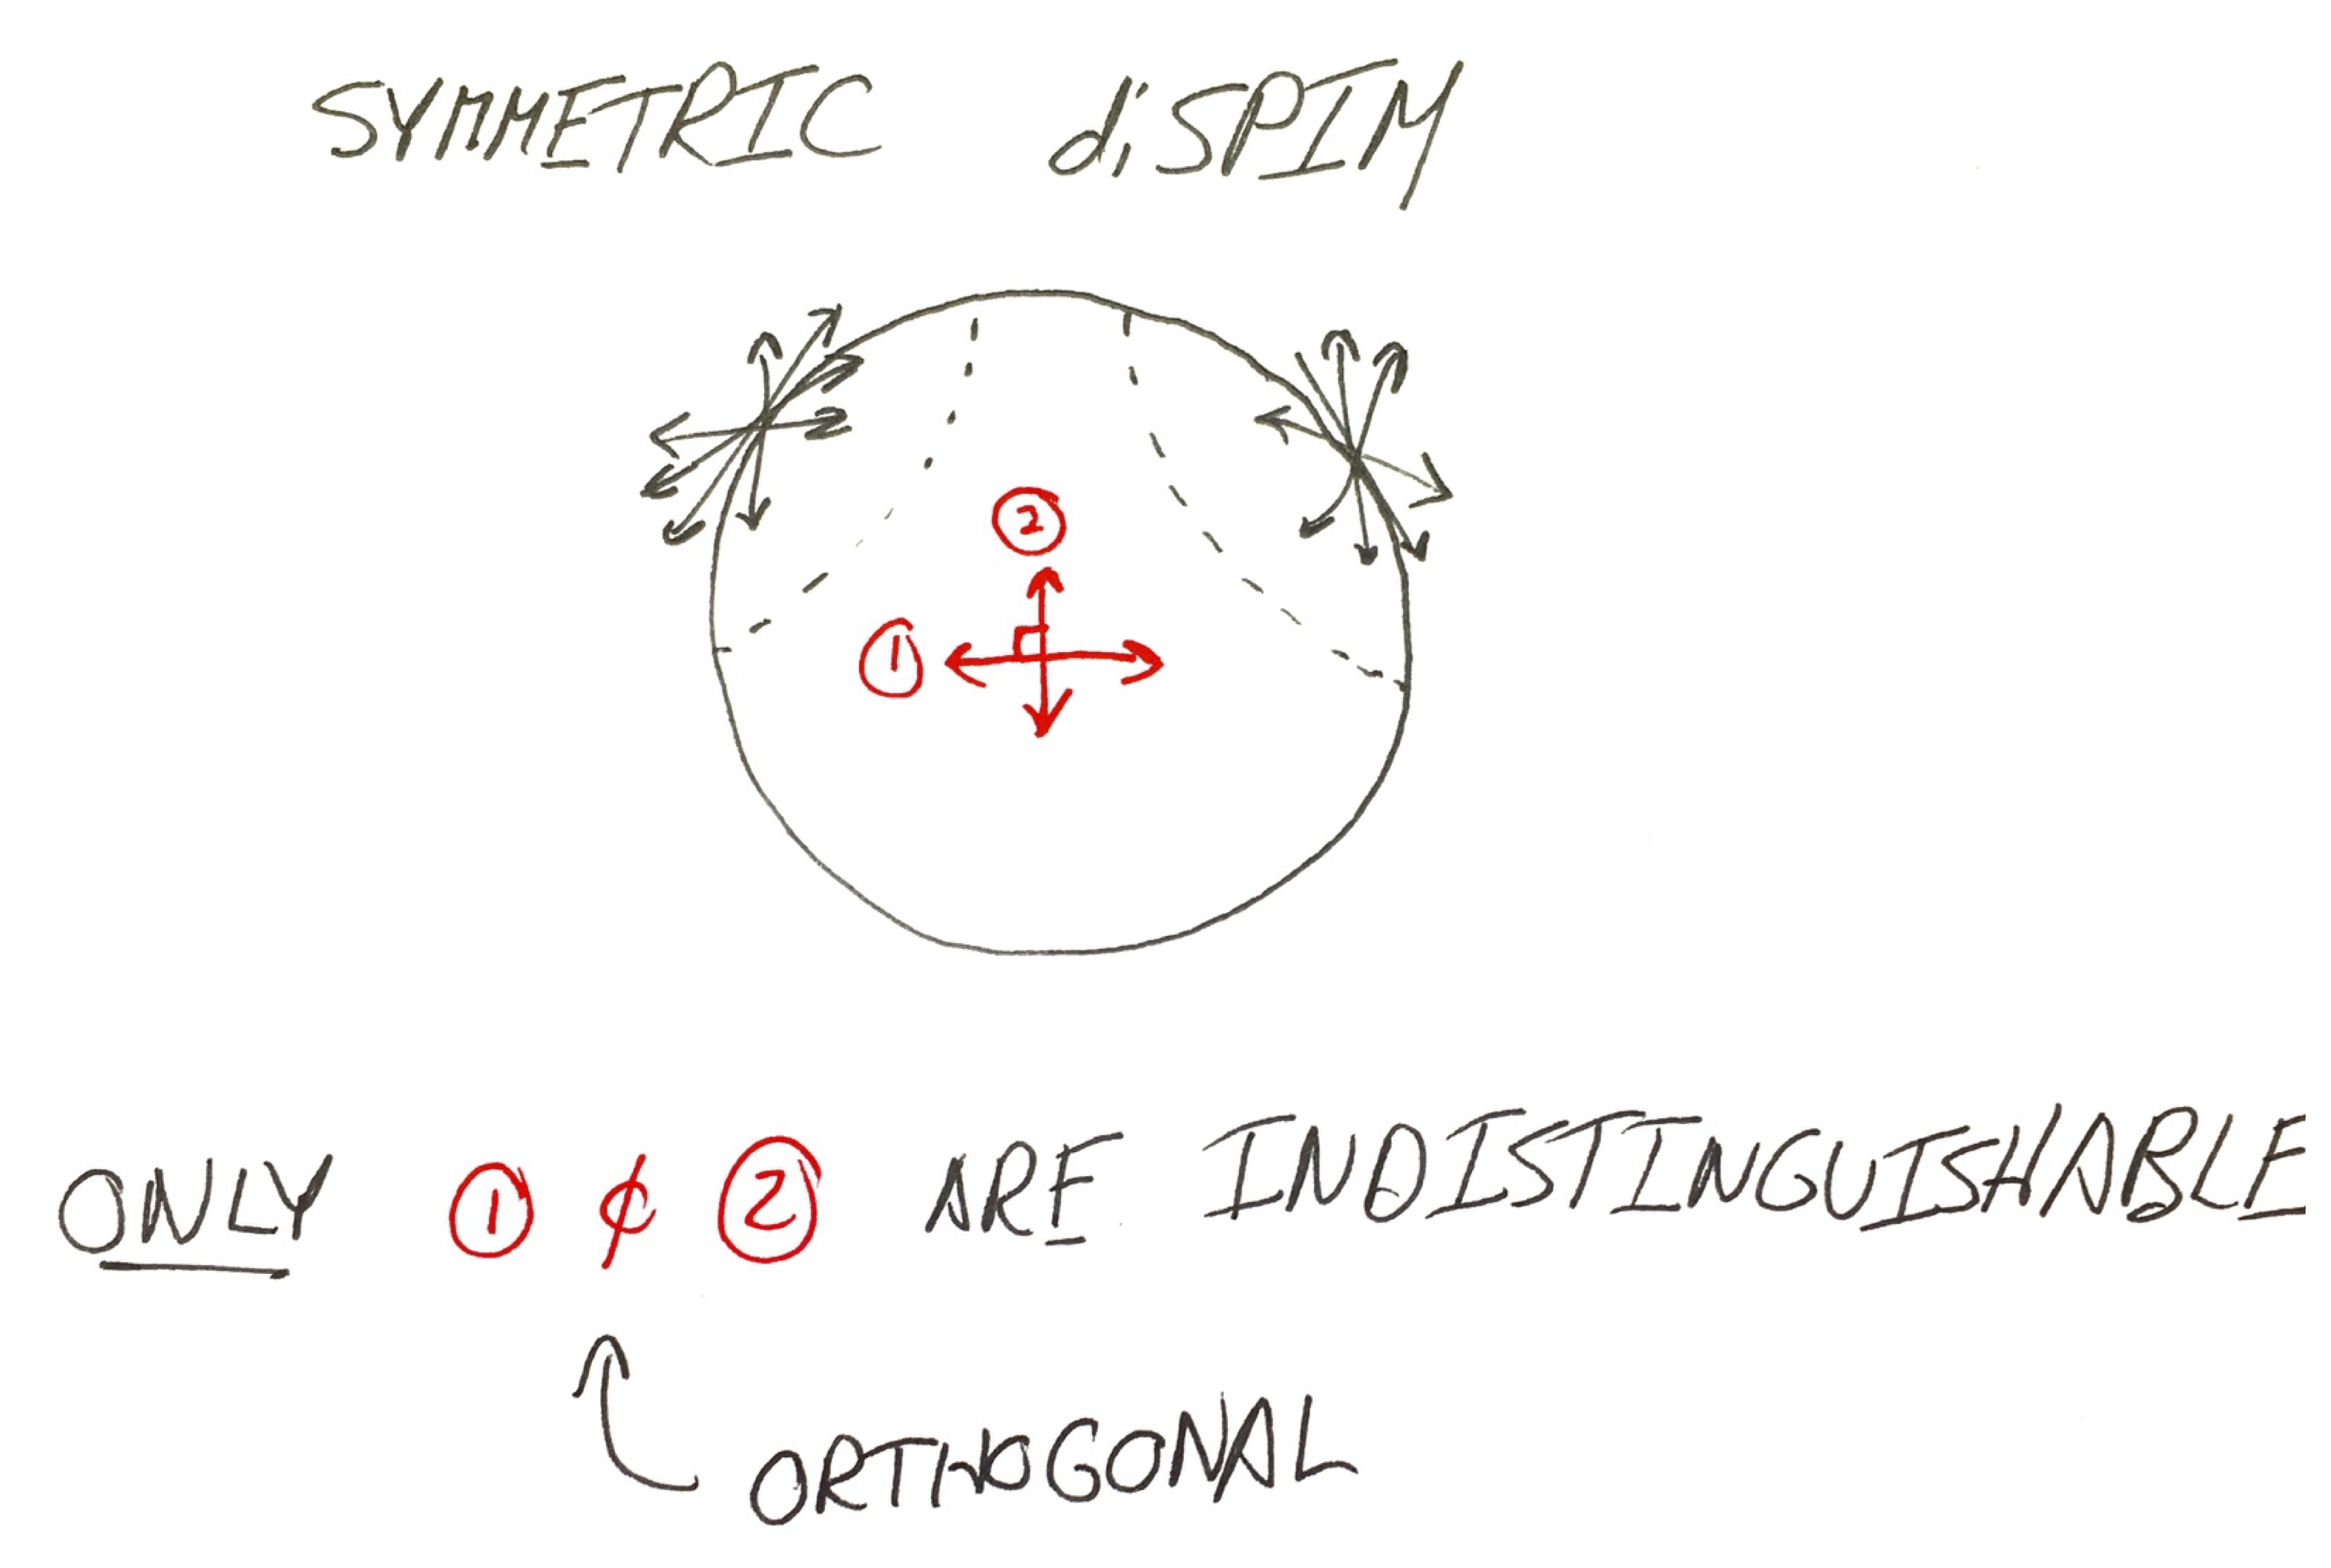 SYMMETRIC diSPIM
②
①
ONLY ① & ② ARE INDISTINGUISHABLE
ORTHOGONAL